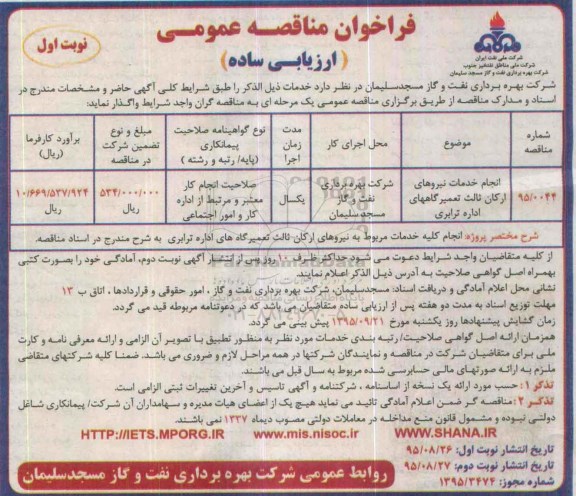 فراخوان مناقصه عمومی
( ارزیابی ساده )
نوبت اول
شرکت ملی نفت ایران
شرکت ملی مناطق نفتخیز جنوب
شرکت بهره برداری نفت و گاز مسجد سلیمان
شرکت بهره برداری نفت و گاز مسجدسلیمان در نظر دارد خدمات ذیل الذکر را طبق شرایط کلی آگهی حاضر و مشخصات مندرج در
اسناد و مدارک مناقصه از طریق برگزاری مناقصه عمومی یک مرحله ای به مناقصه گران واجد شرایط واگذار نماید:
شماره مناقصه
موضوع
محل اجرای کار
مدت زمان اجرا
نوع گواهینامه صلاحیت پیمانکاری (پایه/ رتبه و رشته )
مبلغ و نوع تضمین شرکت در مناقصه
برآورد کارفرما (ریال)
۹۵/۰۰۴۴
انجام خدمات نیروهای ارکان ثالث تعمیرگاههای اداره ترابری
شرکت بهره برداری نفت و گاز مسجدسلیمان
یکسال
صلاحیت انجام کار معتبر و مرتبط از اداره کار و امور اجتماعی
۵۳۴/۰۰۰/۰۰۰ ریال
۱۰/۶۶۹/۵۳۷/۹۲۴ ریال
شرح مختصر پروژه: انجام کلیه خدمات مربوط به نیروهای ارکان ثالث تعمیرگاه های اداره ترابری به شرح مندرج در اسناد مناقصه.
از کلیه متقاضیان واجد شرایط دعوت می شود حداکثر ظرف ۱۰ روز پس از انتشار آگهی نوبت دوم، آمادگی خود را بصورت کتبی
بهمراه اصل گواهی صلاحیت به آدرس ذیل الذکر اعلام نمایند.
نشانی محل اعلام آمادگی و دریافت اسناد: مسجدسلیمان، شرکت بهره برداری نفت و گاز ، امور حقوقی و قراردادها ، اتاق ب ۱۳
مهلت توزیع اسناد به مدت دو هفته پس از ارزیابی ساده متقاضیان می باشد که در دعوتنامه مربوطه قید می گردد.
زمان گشایش پیشنهادها روز یکشنبه مورخ ۱۳۹۵/۰۹/۲۱ پیش بینی می گردد.
همزمان ارائه اصل گواهی صلاحیت/ رتبه بندی خدمات مورد نظر به منظور تطبیق با تصویر آن الزامی و ارائه معرفی نامه و کارت
ملی برای متقاضیان شرکت در مناقصه و نمایندگان شرکتها در همه مراحل لازم و ضروری می باشد. ضمنا کلیه شرکتهای متقاضی
ملزم به ارائه صورتهای مالی حسابرسی شده مربوط به سال قبل می باشند.
تذکر ۱: حسب مورد ارائه یک نسخه از اساسنامه ، شرکتنامه و آگهی تاسیس و آخرین تغییرات ثبتی الزامی است.
تذکر ۲: مناقصه گر ضمن اعلام آمادگی تائید می نماید هیچ یک از اعضای هیات مدیره و سهامداران آن شرکت/ پیمانکاری شاغل
دولتی نبوده و مشمول قانون منع مداخله در معاملات دولتی مصوب دیماه ۱۳۳۷ نمی باشند.
HTTP://IETS.MPORG.IR www.mis.nisoc.ir WWW.SHANA.IR
تاریخ انتشار نوبت اول: ۹۵/۰۸/۲۶
تاریخ انتشار نوبت دوم: ۹۵/۰۸/۲۷
شماره مجوز: ۱۳۹۵/۳۴۷۴
روابط عمومی شرکت بهره برداری نفت و گاز مسجدسلیمان